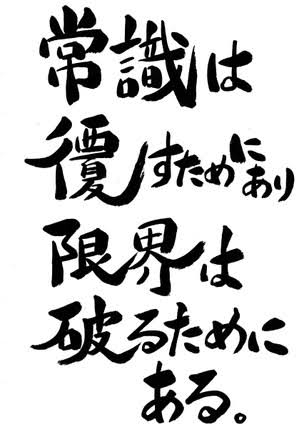 常識は
覆すためにあり
限界は
破るために
ある。